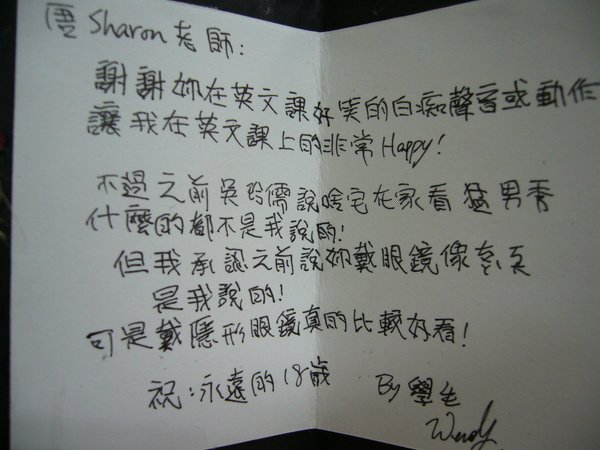 Sharon老師:
謝謝妳在英文課好笑的白痴聲音或動作
讓我在英文課上的非常Happy!
不過之前吳玲儒說啥宅在家看猛男秀
什麼的都不是我說的!
但我承認之前說妳戴眼鏡像
是我說的!
可是戴隱形眼鏡真的比較好看!
祝:永遠的18歲
By學生
Wendy